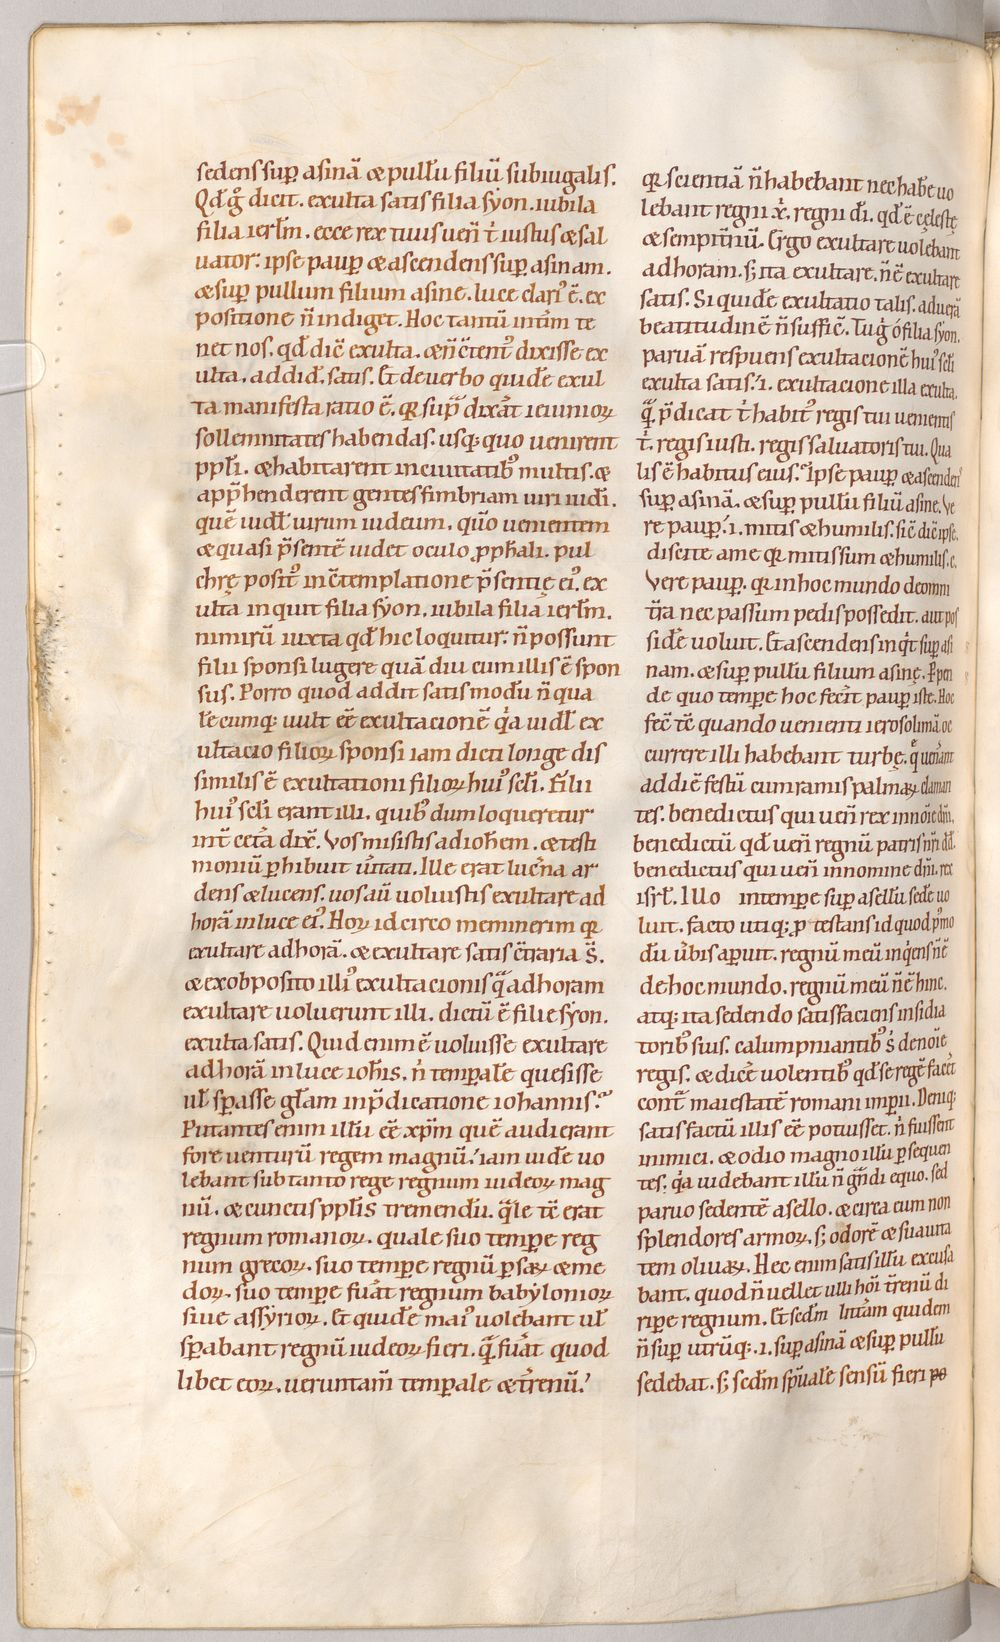 sedens sup asinā & pullū filiū subiugalis.
Qd̄ g̊ dicit. exulta satis filia syon. iubila
filia ierlm̄. ecce rex tuus ueñ t̄ iustus & sal
uator: ipse paup & ascendens sup asinam.
& sup pullum filium asine. luce clari᾽ ē. ex
positione ñ indiget. Hoc tantū intīm te
net nos. qd̄ diē exulta. & ñ ētent᾽ dixisse ex
ulta. addid̄. satis. Et de uerbo quidē exul
ta manifesta ratio ē. qꝛ sup̄ dixāt ieiunioꝝ
sollemnitates habendas. usq; quo uenirent
ppl̄i. & habitarent in ciuitatib᾽ multis. &
app̄henderent gentes fimbriam uiri iud̄i.
quē uidl̄ uirum iudeum. qūo uenientem
& quasi p̄sentē uidet oculo ꝓph̄ali. pul
chrę posit᾽ in ētemplatione p̄sentię ei᾽. ex
ulta inquit filia syon. iubila filia ierlm̄.
nimirū iuxta qd̄ hic loquitur: ñ possunt
filii sponsi lugere quā diu cum illis ē spon
sus. Porro quod addit satis modū ñ qua
lē cumq; uult eē exultacionē q̄a uidl̄ ex
ultacio filioꝝ sponsi iam dicti longe dis
similis ē exultationi filioꝝ hui᾽ scl̄i. Filii
hui᾽ scl̄i erant illi. quib᾽ dum loqueretur
int̄ cet̄a dix̄. Vos misistis ad ioh̄em. & testi
moniū ꝑhibuit ūitati. Ille erat lucn̄a ar
dens & lucens. uos aū uoluistis exultare ad
horā in luce ei᾽. Hoꝝ idcirco meminerim qꝛ
exultare ad horā. & exultare satis ēt̄raria s̄.
& ex obposito illi᾽ exultacionis q̄ ad horam
exultare uoluerunt illi. dictū ē filie syon.
exulta satis. Quid enim ē uoluisse exultare
ad horā in luce ioh̄is. ñ tempalē quesisse
ul̄ sp̄asse glām in p̄dicatione iohannis.
Putantes enim illū eē xp̄m quē audierant
fore uenturū regem magnū. iam uidē uo
lebant sub tanto rege regnum iudeoꝝ mag
nū. & cunctis ppl̄is tremendū. q̄le tē erat
regnum romanoꝝ. quale suo tempe reg
num grecoꝝ. suo tempe regnū psaꝝ & me
doꝝ. suo tempe fuāt regnum babylonioꝝ
siue assyrioꝝ. Et quidē mai᾽ uolebant ul̄
sp̄abant regnū iudeoꝝ fieri. q̄ fuāt quod
libet eoꝝ. ueruntam̄ tempale & t̄renū.
qꝛ scientiā ñ habebant nec habē uo
lebant regni x̄. regni dī. qd̄ ē celestę
& sempit̄nū. Ergo exultare uolebant
ad horam. s; ita exultare. ñ ē exultare
satis. Siquidē exultatio talis. ad uerā
beatitudinē ñ sufficē. Tu g̊ o filia syon.
paruā respuens exultacionē hui᾽ scl̄i
exulta satis. .i. exultacione illa exulta.
q̄ p̄dicat t̄ habit᾽ regis tui uenientis
t̄. regis iusti. regis saluatoris tui. Qua
lis ē habitus eius. Ipse paup & ascendens
sup asinā. & sup pullū filiū asine. Ve
re paup. .i. mitis & humilis. sic̄ diē ipse.
discite a me qꝛ mitis sum & humilis. c.
Vere paup. qꝛ in hoc mundo de omni
t̄ra nec passum pedis possedit. aut pos
sidē uoluit. Et ascendens inq̄t sup asi
nam. & sup pullū filium asinę. Ppen
de quo tempe hoc fecīt paup iste. Hoc
fec̄ tē quando uenienti ierosolimā oc
currere illi habebant turbę. q̄ uenāt
ad diē festū cum ramis palmaꝝ claman
tes. benedictus qui ueñ rex in nōie dn̄i.
benedictū qd̄ ueñ regnū patris nr̄i dd̄.
benedictus qui ueñ in nomine dn̄i. rex
isrl̄. Illo in tempe sup asellū sedē uo
luit. facto utiq; ꝓtestans id quod p᾽mo
dū ūbis apuit. regnū meū inq̄ens ñ ē
de hoc mundo. regnū meū ñ ē hinc.
atq; ita sedendo satisfaciens insidia
torib᾽ suis. calumpniantib᾽ s᾽ de nōie
regis. & dicē uolentib᾽ qd̄ se regē facēt
cont̄ maiestatē romani impii. Deniq;
satisfactū illis eē potuisset. ñ fuissent
inimici. & odio magno illū psequen
tes. q̄a uidebant illū ñ g̃ndi equo. sed
paruo sedentē asello. & circa eum non
splendores armoꝝ. s; odorē & suauita
tem oliuaꝝ. Hec enim satis illū excusa
bant. quod ñ uellet ulli hoī t̄renū di
ripe regnum. Et sedm̄ litt̄am quidem
ñ sup utrūq; .i. sup asinā & sup pullū
sedebat. s; sedm̄ sp̄ualē sensū fieri po